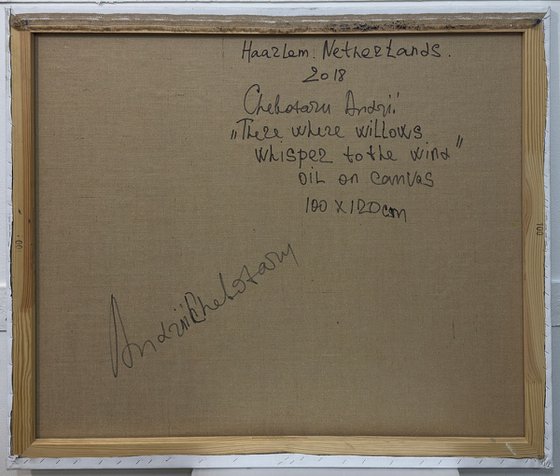 Haarlem. Netherlands.
2018
Chebotaru Andrii
„There where willows
whisper to the wind”
OIL on canvas
100 x 120 cm
Andrii Chebotaru
100